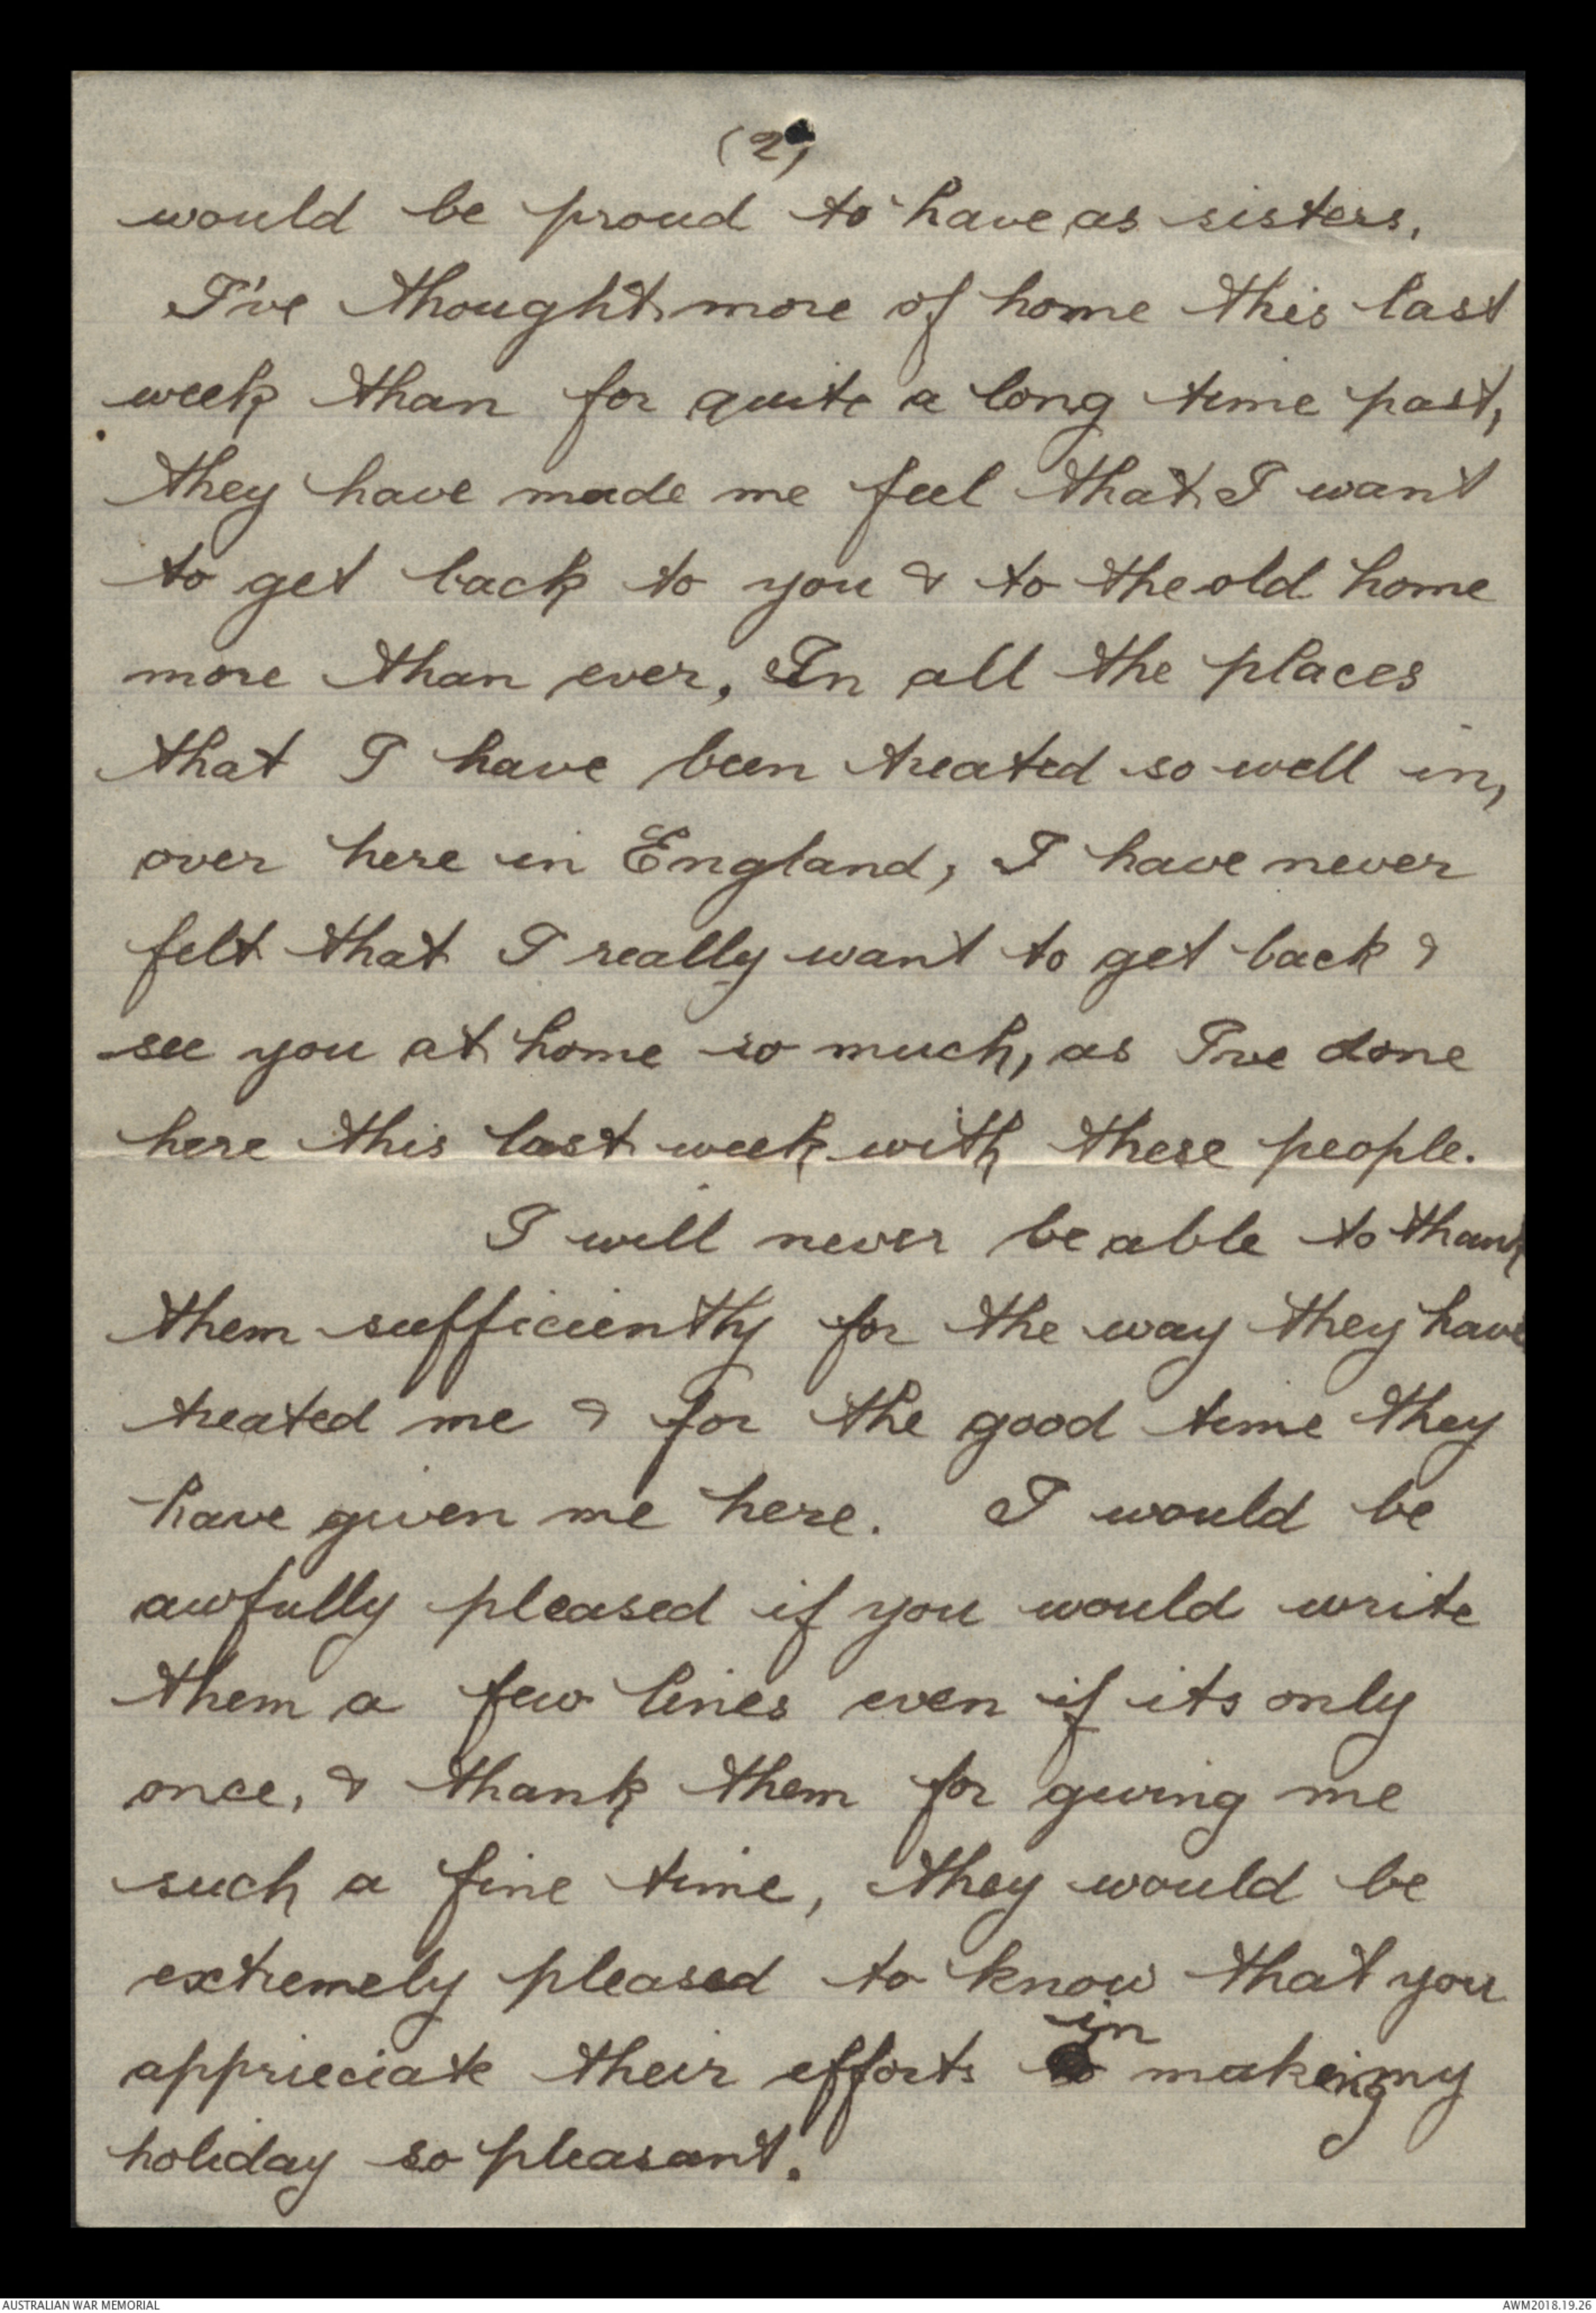 (2)
would be proud to have as sisters.
I've thought more of home this last
week than for quite a long time past,
they have made me feel that I want
to get back to you & to the old home
more than ever. In all the places
that I have been treated so well in,
over here in England, I have never
felt that I really want to get back &
see you at home so much, as I've done
here this last week with these people.
I will never be able to thank
them sufficiently for the way they have
treated me & for the good time they
have given me here. I would be
awfully pleased if you would write
them a few lines even if its only
once, & thank them for giving me
such a fine time, they would be
extremely pleased to know that you
in
apprieciate their efforts makeing my
holiday so pleasant.
AUSTRALIAN WAR MEMORIAL AWM2018.19.26